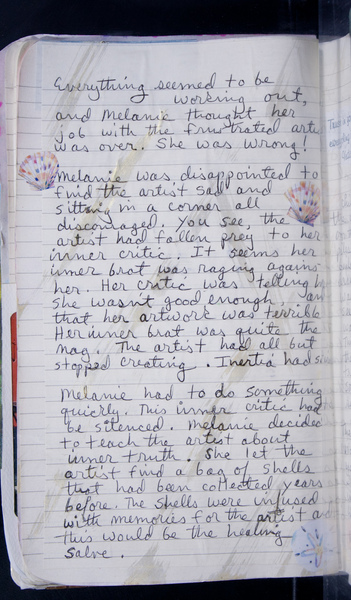 Everything seemed to be
working out,
and Melanie thought her
job with the frustrated
was over. She was wrong!
Melanie was disappointed to
find the artist sad and
sitting in a corner all
discouraged. You see, the
artist had fallen prey to her
inner critic. It seems her
inner brat was raging agains
her. Her critic was telling
she wasn't good enough, an
that her artwork was terrible
Her inner brat was quite the
nag. The artist had all but
stopped creating. Inertia had
Melanie had to do something
quickly. This inner critic had
be silenced. Melanie decided
to teach the artist about
inner truth. She let the
artist find a bag of shells
that had been collected years
before. The shells were infused
with memories for the artist an
this would be the healing
salve.